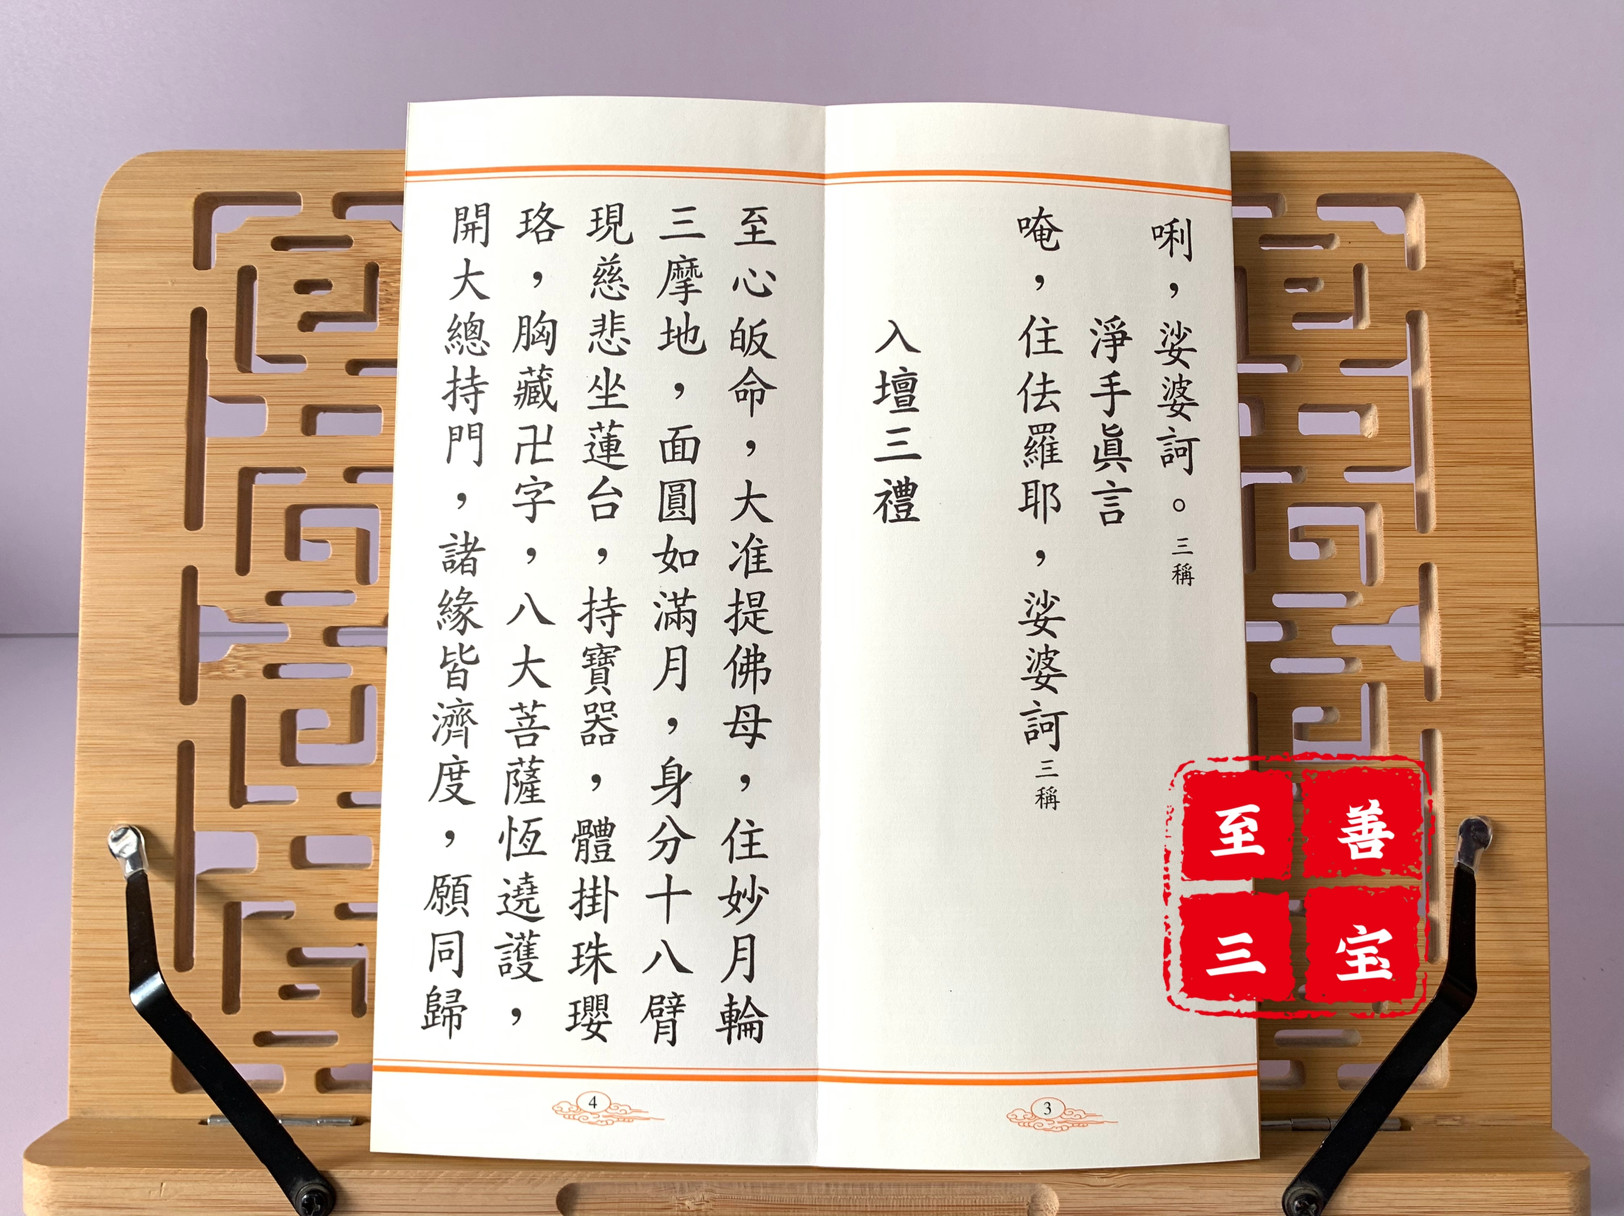 唎，娑婆訶。三稱
淨手眞言
唵，住佉羅耶，娑婆訶三稱
入壇三禮
3
至心皈命，大准提佛母，住妙月輪
三摩地，面圓如滿月，身分十八臂
現慈悲坐蓮台，持寶器，體掛珠瓔
珞，胸藏卍字，八大菩薩恆遶護，
開大總持門，諸緣皆濟度，願同歸
4
至善
三宝